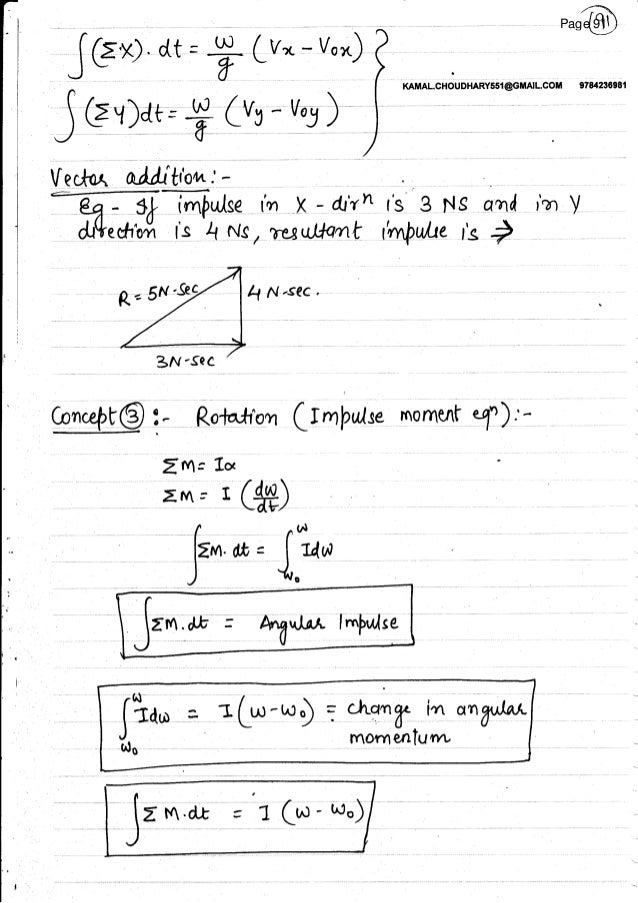 Page 91
∫(ΣX). dt = w/g (Vx - Vox)
KAMAL.CHOUDHARY551@GMAIL.COM 9784236981
∫(ΣY)dt = w/g (Vy - Voy)
Vector addition:-
Eg - If impulse in X - dirⁿ is 3 NS and in Y
direction is 4 NS, resultant impulse is ⇒
R = 5N-Sec
4 N-sec.
3N-sec
Concept ③ :- Rotation (Impulse moment eqⁿ):-
ΣM = Iα
ΣM = I (dω/dt)
∫ΣM. dt = ∫_{ω₀}^{ω} Idω
∫ΣM.dt = Angular Impulse
∫_{ω₀}^{ω} Idω = I(ω-ω₀) = change in angular
momentum
∫ΣM.dt = I (ω - ω₀)